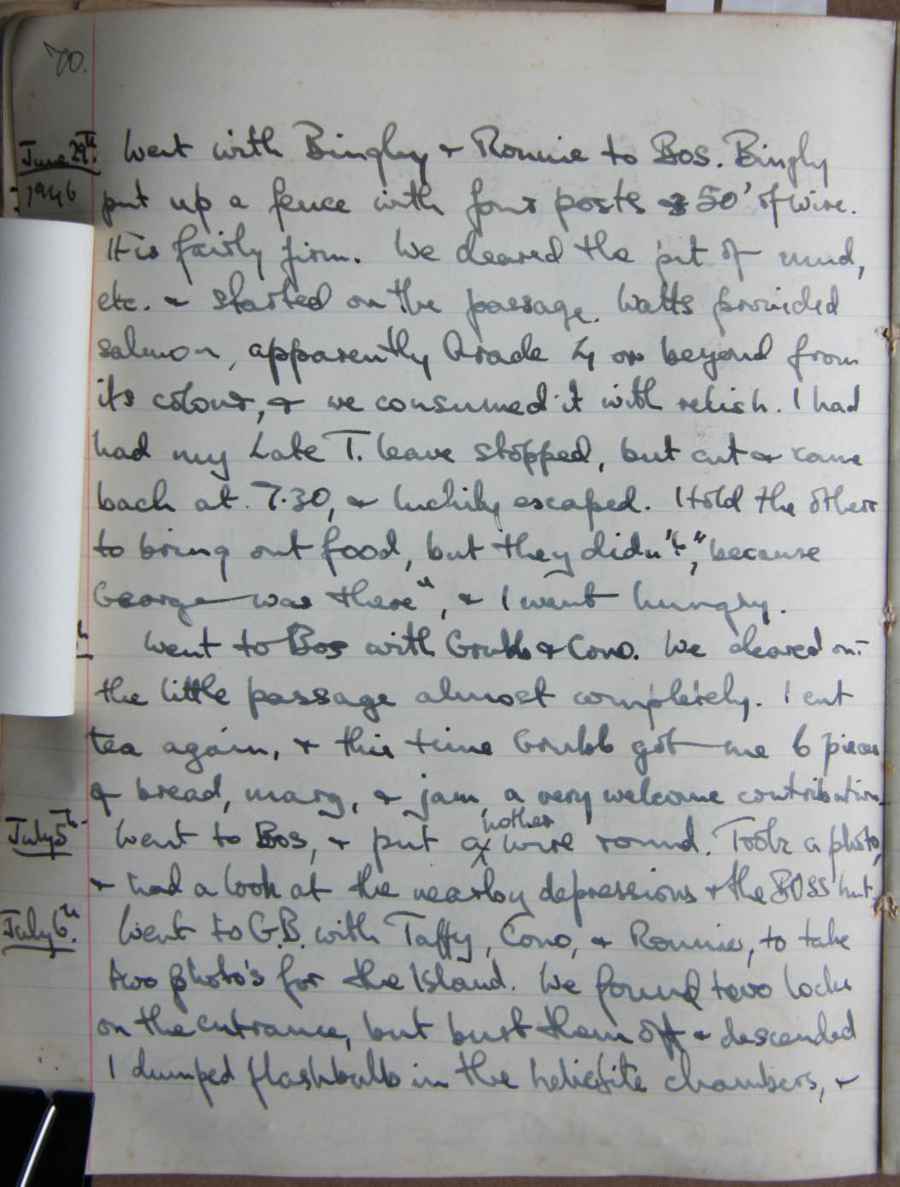 70.
June 29th. Went with Bingley & Ronnie to Bos. Bingly
1946 put up a fence with four posts & 50' of wire.
It is fairly firm. We cleared the pit of mud,
etc. & started on the passage. Watts provided
salmon, apparently Grade 4 or beyond from
its colour, & we consumed it with relish. I had
had my Late T. leave stopped, but cut & came
back at 7.30, & luckily escaped. I told the others
to bring out food, but they didn't, "because
George was there", & I went hungry.
Went to Bos with Grubb & Cono. We cleared out
the little passage almost completely. I cut
tea again, & this time Grubb got me 6 pieces
of bread, marg, & jam, a very welcome contribution.
July 5th Went to Bos, & put another wire round. Took a photo,
& had a look at the nearby depressions & the BOSS hut.
July 6th. Went to G.B. with Taffy, Cono, & Ronnie, to take
two photo's for the Island. We found two locks
on the entrance, but bust them off & descended
I dumped flashbulbs in the helictite chambers, &